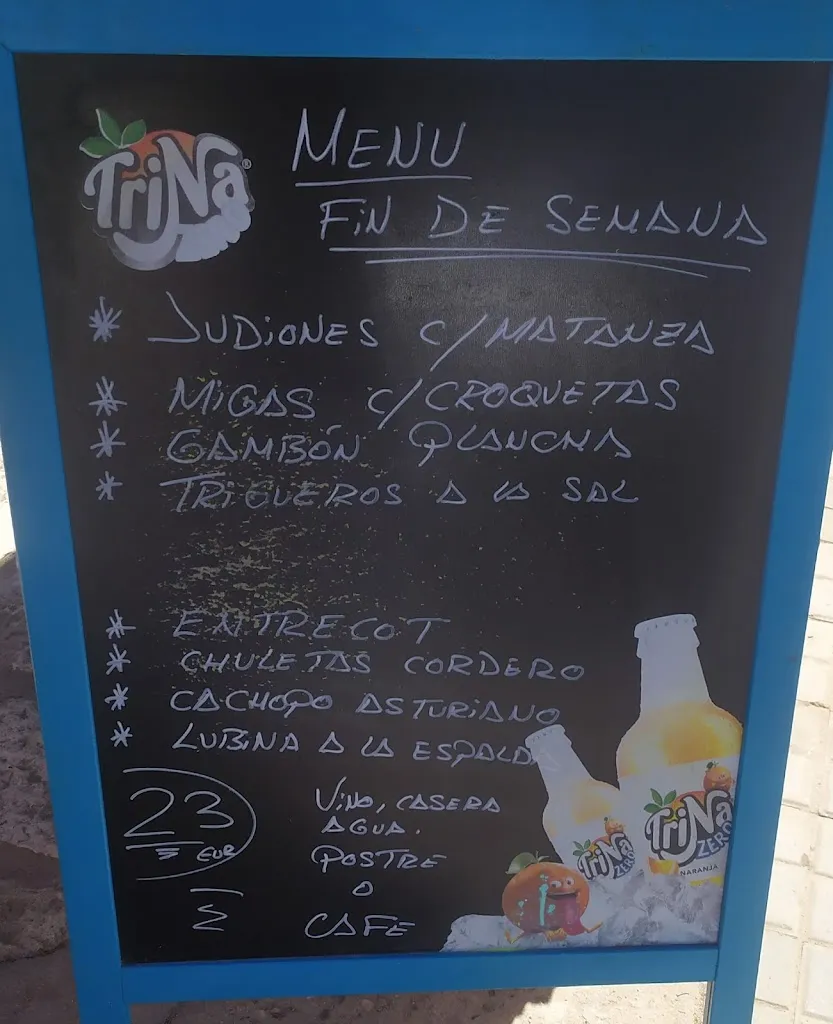 TriNa®
MENU
FiN DE SEMANA
* JUDiONES C/MATANZA
* MiGAS C/CROQUETAS
* GAMBÓN PLANCHA
* TRiGUEROS A LA SAL
* ENTRECOT
* CHULETAS CORDERO
* CACHOPO ASTURiANO
* LUBiNA A LA ESPALDA
23 EUR
ViNO, CASERA
AGUA.
POSTRE
O
CAFE
TriNa
ZERO
TriNa
ZERO
NARANJA